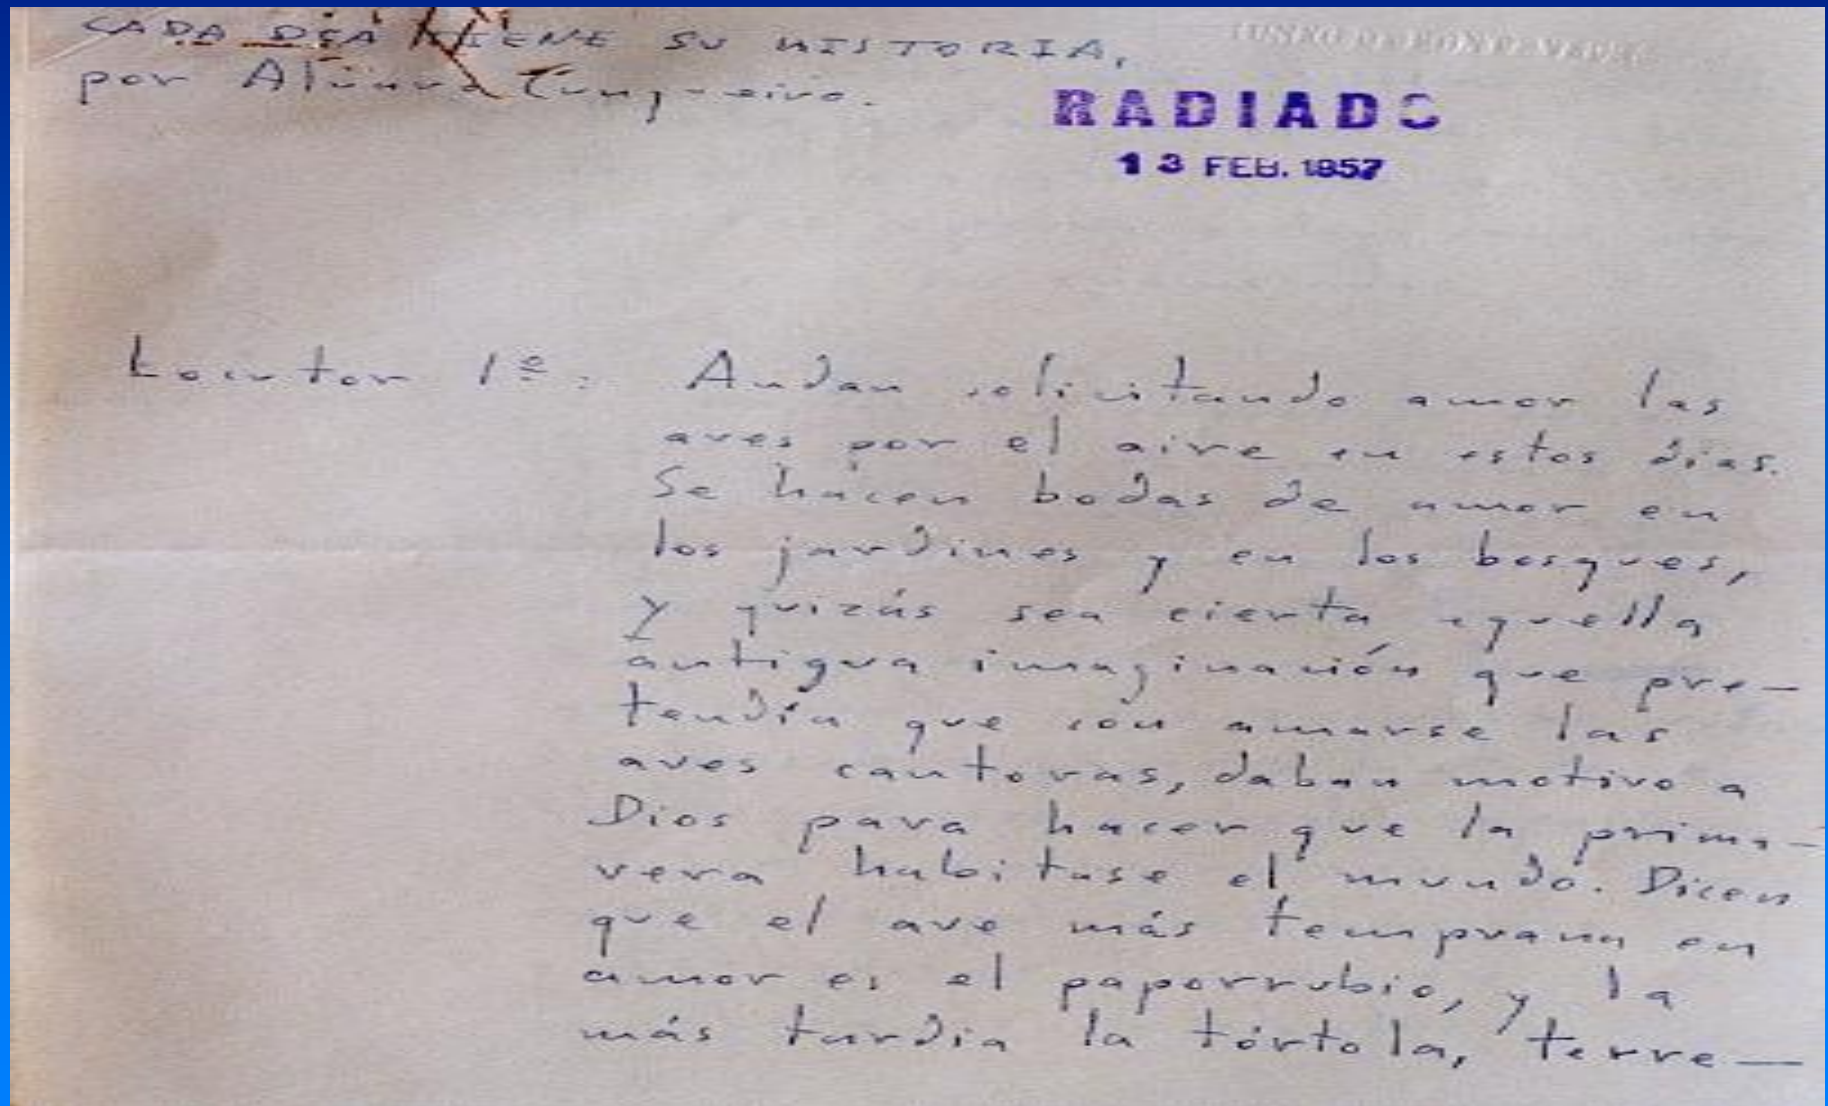 CADA DÍA TIENE SU HISTORIA,
por Alvaro Cunqueiro.
MUSEO DE PONTEVEDRA
RADIADO
13 FEB. 1957
Locutor 1º: Andan solicitando amor las
aves por el aire en estos días.
Se hacen bodas de amor en
los jardines y en los bosques,
y quizás sea cierta aquella
antigua imaginación que pre-
tendía que con amarse las
aves cantoras, daban motivo a
Dios para hacer que la prima-
vera habitase el mundo. Dicen
que el ave más temprana en
amor es el paporrubio, y la
más tardía la tórtola, terre-